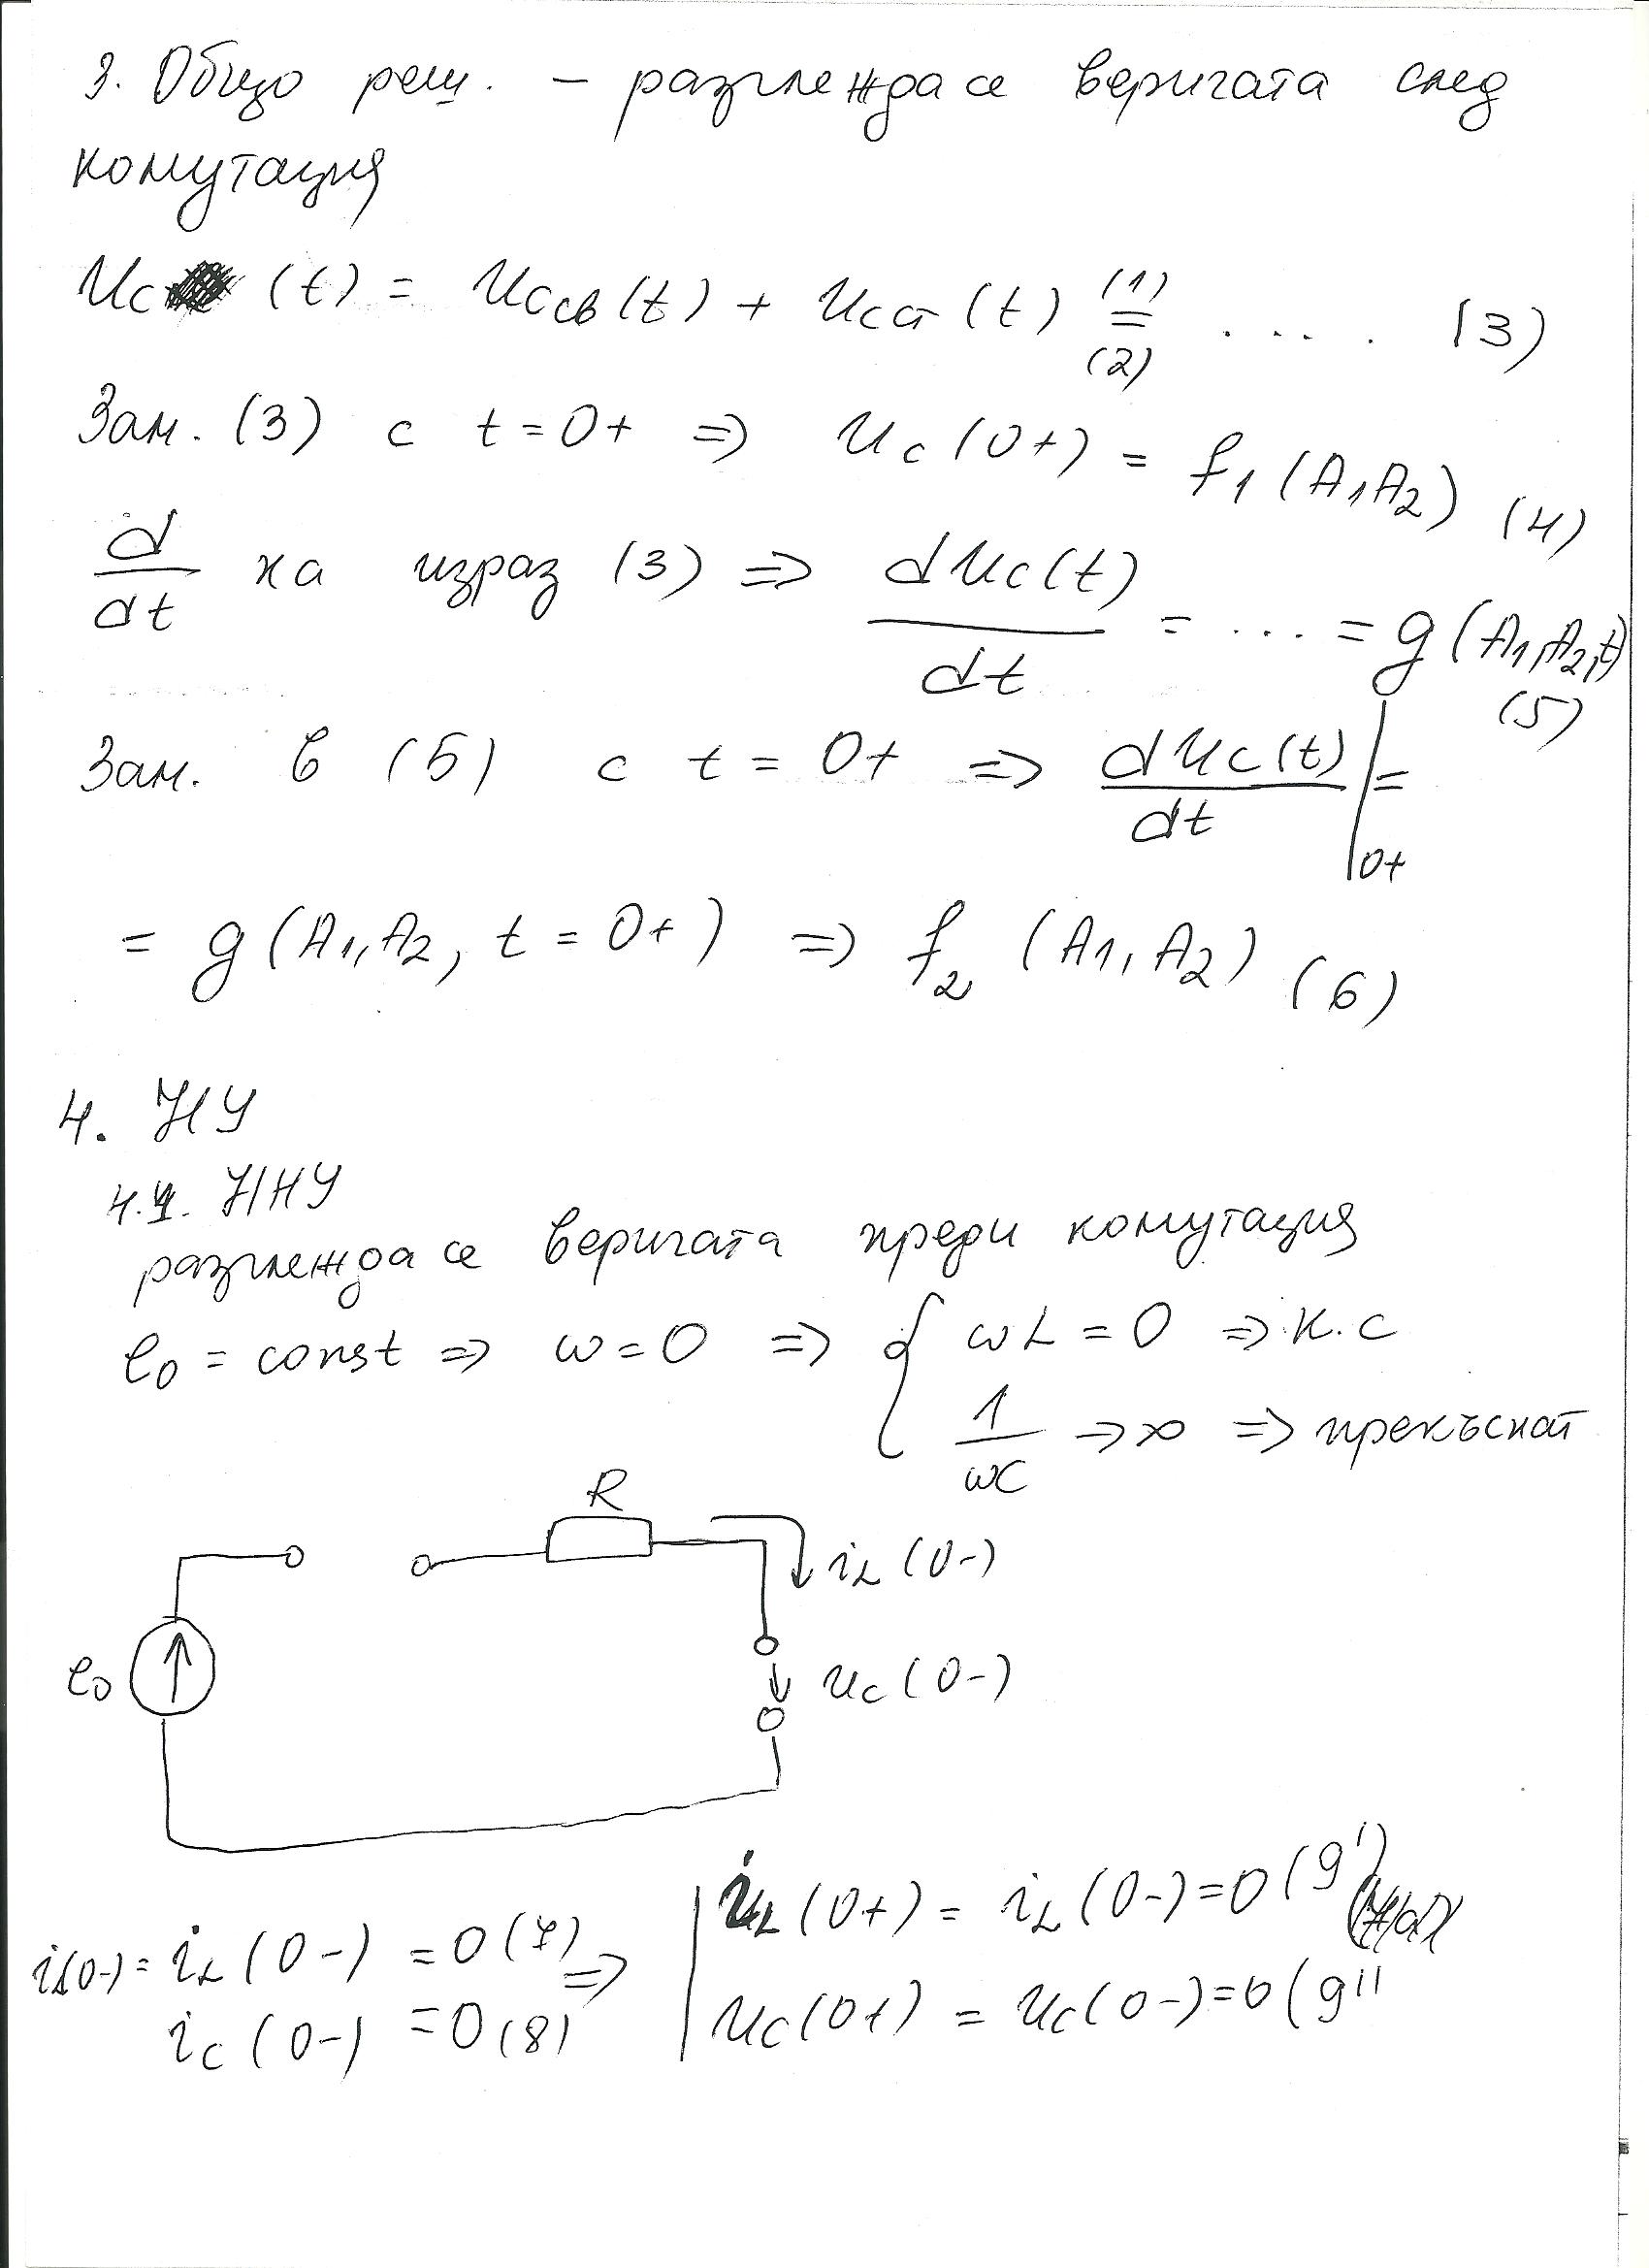 3. Общо реш. – разглежда се веригата след
комутация
Uc (t) = Uc св (t) + Uc ст (t) (1) = (2) ..... (3)
Зам. (3) с t = 0+ => Uc (0+) = f1 (A1 A2) (4)
d/dt на израз (3) => dUc(t)/dt = ... = g (A1, A2, t) (5)
Зам. в (5) с t = 0+ => dUc(t)/dt |0+ =
= g (A1, A2, t = 0+) => f2 (A1, A2) (6)
4. НУ
4.1. ННУ
разглежда се веригата преди комутация
e0 = const => ω = 0 => { ωL = 0 => к.с
1/ωC -> ∞ => прекъснат
R
iL (0-)
e0
uc (0-)
i(0-) = iL (0-) = 0 (7) => iL (0+) = iL (0-) = 0 (9')
ic (0-) = 0 (8) uc (0+) = uc (0-) = 0 (9''